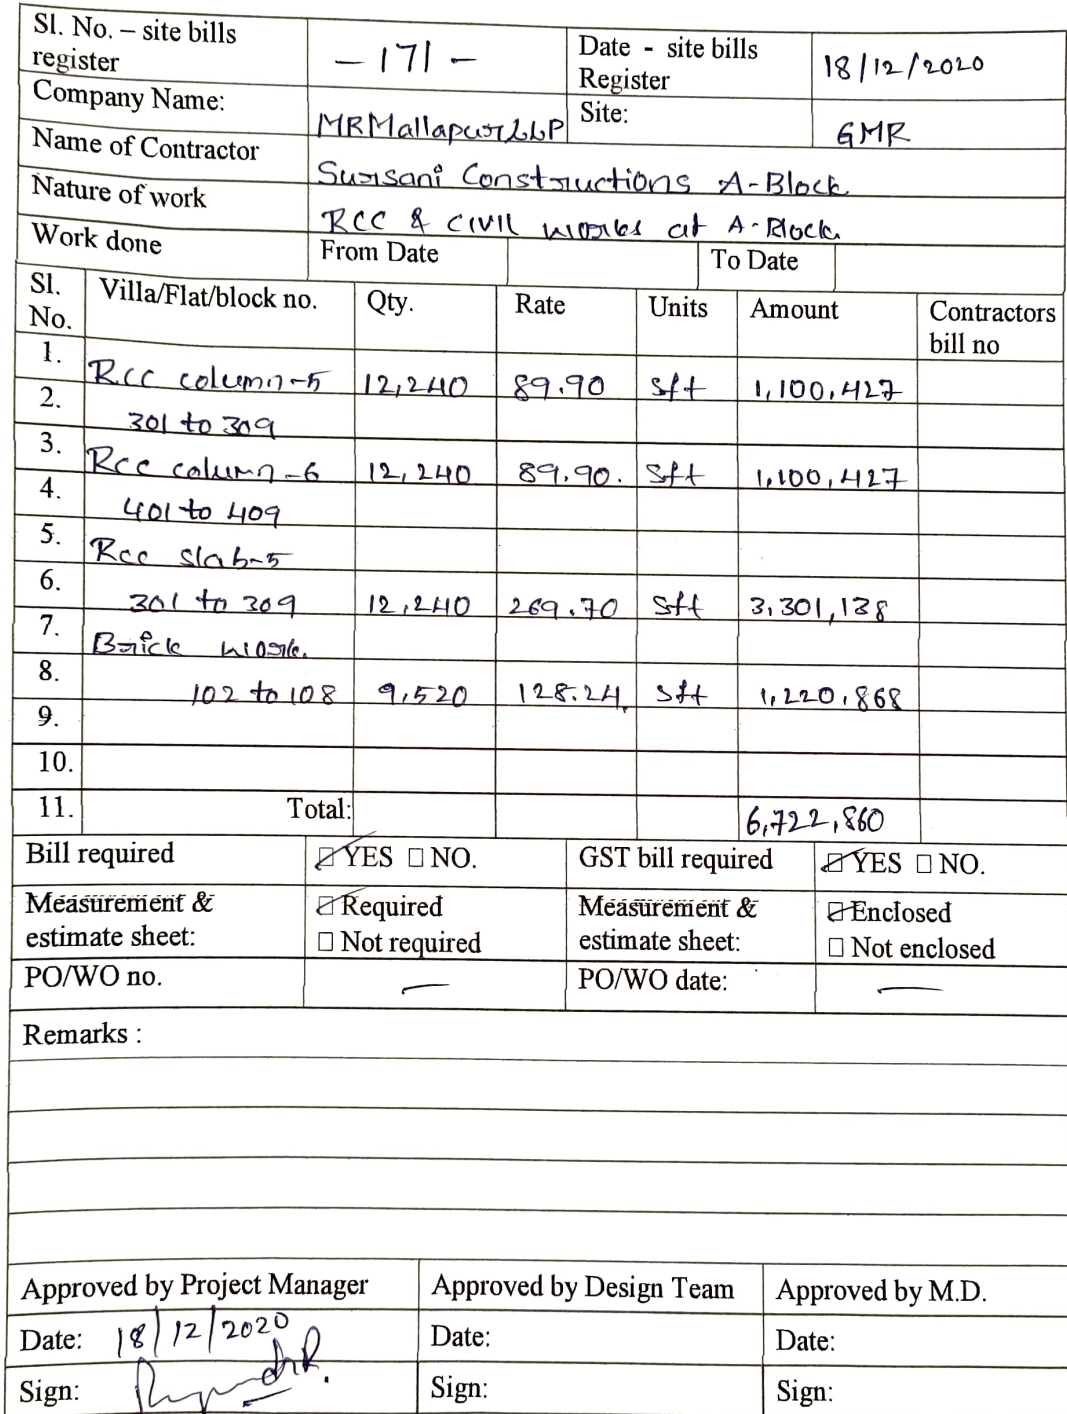 Sl. No. – site bills register – 171 – Date - site bills Register 18/12/2020
Company Name: MRMallapurLLP Site: GMR
Name of Contractor Sursani Constructions A-Block
Nature of work RCC & civil works at A-Block
Work done From Date To Date
Sl. No. Villa/Flat/block no. Qty. Rate Units Amount Contractors bill no
1. Rcc column-5 12,240 89.90 sft 1,100,427
2. 301 to 309
3. Rcc column-6 12,240 89.90. sft 1,100,427
4. 401 to 409
5. Rcc slab-5
6. 301 to 309 12,240 269.70 sft 3,301,138
7. Brick work.
8. 102 to 108 9,520 128.24 sft 1,220,868
9.
10.
11. Total: 6,722,860
Bill required ☑ YES □ NO. GST bill required ☑ YES □ NO.
Measurement & estimate sheet: ☑ Required □ Not required Measurement & estimate sheet: ☑ Enclosed □ Not enclosed
PO/WO no. — PO/WO date: —
Remarks :
Approved by Project Manager Approved by Design Team Approved by M.D.
Date: 18/12/2020 Date: Date:
Sign: Sign: Sign: